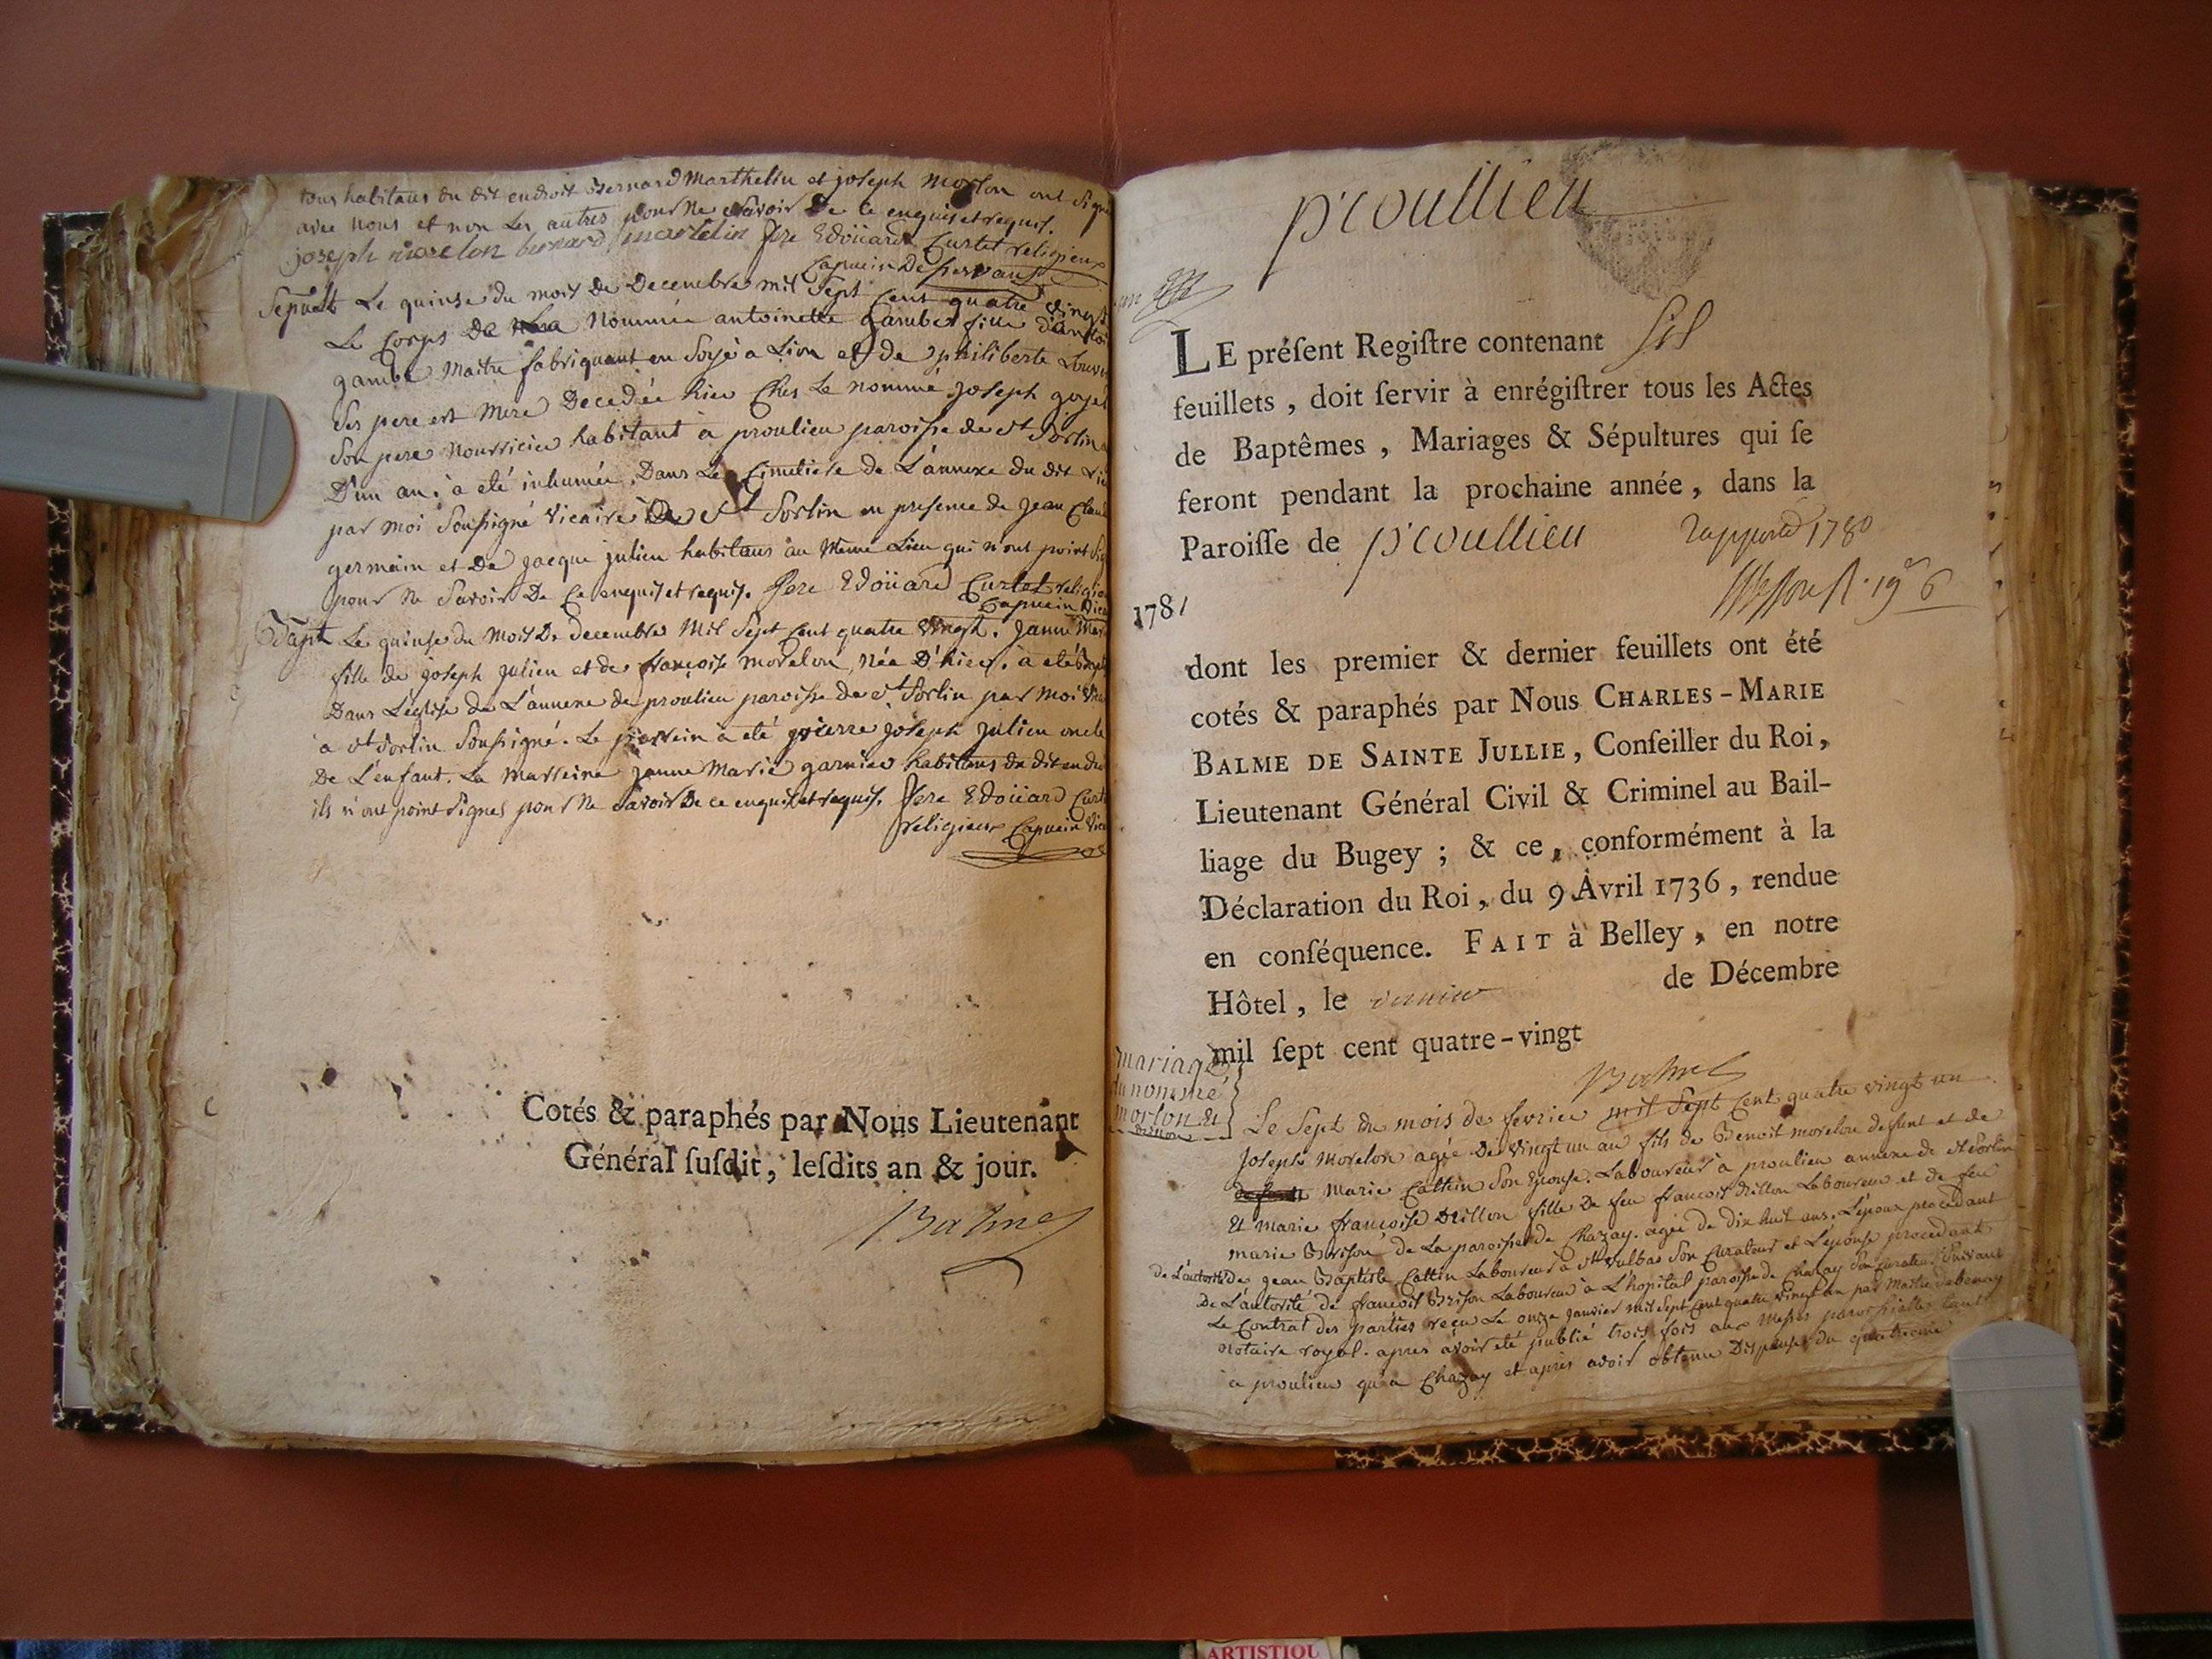 tous habitans du dit endroit Bernard Marthelin et joseph Morlon ont signé
avec nous et non les autres pour ne savoir de ce enquis et requis.
joseph morelon bernard martelin fere Edoüard Curtet religieux
Capucin Deservant
Sepult Le quinse du mois de Decembre mil Sept Cent quatre vingt
Le Corps de Nommée antoinette gambet fille
gambet Maitre fabriquant en Soye a Lion et de philiberte
Ses pere et Mere Decedée hier Ches Le nommé joseph
Son pere Nourricier habitant a proulieu paroisse de st Sorlin
D'un an. a eté inhumée Dans Le Cimetiere de L'annexe du dit
par moi Soussigné vicaire De St Sorlin en presence de jean
germain et De jacque julien habitans au Même Lieu qui n'ont point
pour Ne Savoir De Ce enquis et requis. fere Edoüard Curtet
Capucin
Bapt Le quinse du Mois De decembre Mil Sept Cent quatre Vingt. janne
fille de joseph julien et de françoise morelon, née D'hier. a eté
Dans L'eglise de L'annexe de proulieu paroisse de st Sorlin par Moi
a st Sorlin Soussigné. Le parrein a eté pierre joseph julien oncle
De L'enfant. La Marreine janne Marie garnier habitans du dit
ils n'ont point signés pour Ne savoir De ce enquis et requis. fere Edoüard
religieux Capucin
Cotés & paraphés par Nous Lieutenant
Général ſuſdit, leſdits an & jour.
Balme
proullieu
LE préſent Regiſtre contenant six
feuillets, doit ſervir à enrégiſtrer tous les Actes
de Baptêmes, Mariages & Sépultures qui ſe
feront pendant la prochaine année, dans la
Paroiſſe de proullieu
rapporté 1780
1781
dont les premier & dernier feuillets ont été
cotés & paraphés par Nous CHARLES-MARIE
BALME DE SAINTE JULLIE, Conſeiller du Roi,
Lieutenant Général Civil & Criminel au Bail-
liage du Bugey ; & ce, conformément à la
Déclaration du Roi, du 9 Avril 1736, rendue
en conſéquence. FAIT à Belley, en notre
Hôtel, le dernier de Décembre
mil ſept cent quatre-vingt
Balme
mariage
du nommé
morlon et
drillon
Le Sept du mois de fevrier mil Sept Cent quatre vingt un
joseph Morelon agée De vingt un an fils de Benoit morelon defunt et de
Marie Cattin Son Epouse. Laboureur a proulieu annexe de st Sorlin
Et marie françoise Drillon fille De feu francois drillon Laboureur et de feu
marie Brison de La paroisse de Chazay. agée de dix huit ans. L'epoux procedant
de L'autorité de jean Baptiste Cattin Laboureur a st Vulbas Son Curateur et L'epouse procedant
De L'autorité de francois Brison Laboureur a L'hopital paroisse de Chazay Son curateur Suivant
Le Contrat des parties reçu Le onze janvier mil Sept Cent quatre vingt un par Maitre debenay
Notaire royal. apres avoir eté publié trois fois aux Messes paroissialles tant
a proulieu qu'a Chazay et apres avoir obtenu Dispense du quatrieme
ARTISTIQU